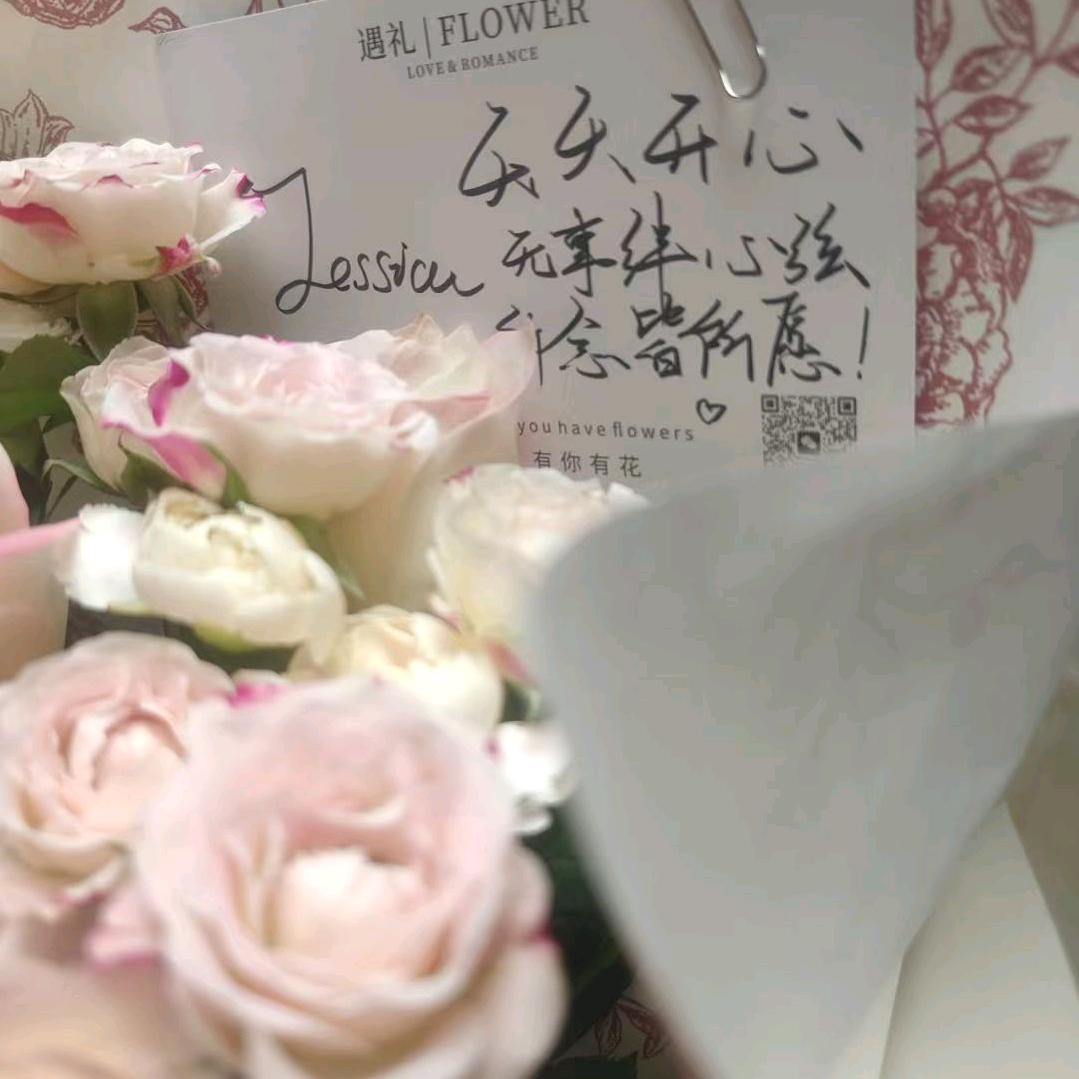 遇礼 | FLOWER
LOVE & ROMANCE
天天开心
Jessica
无事绊心弦
念皆所愿!
you have flowers
有你有花